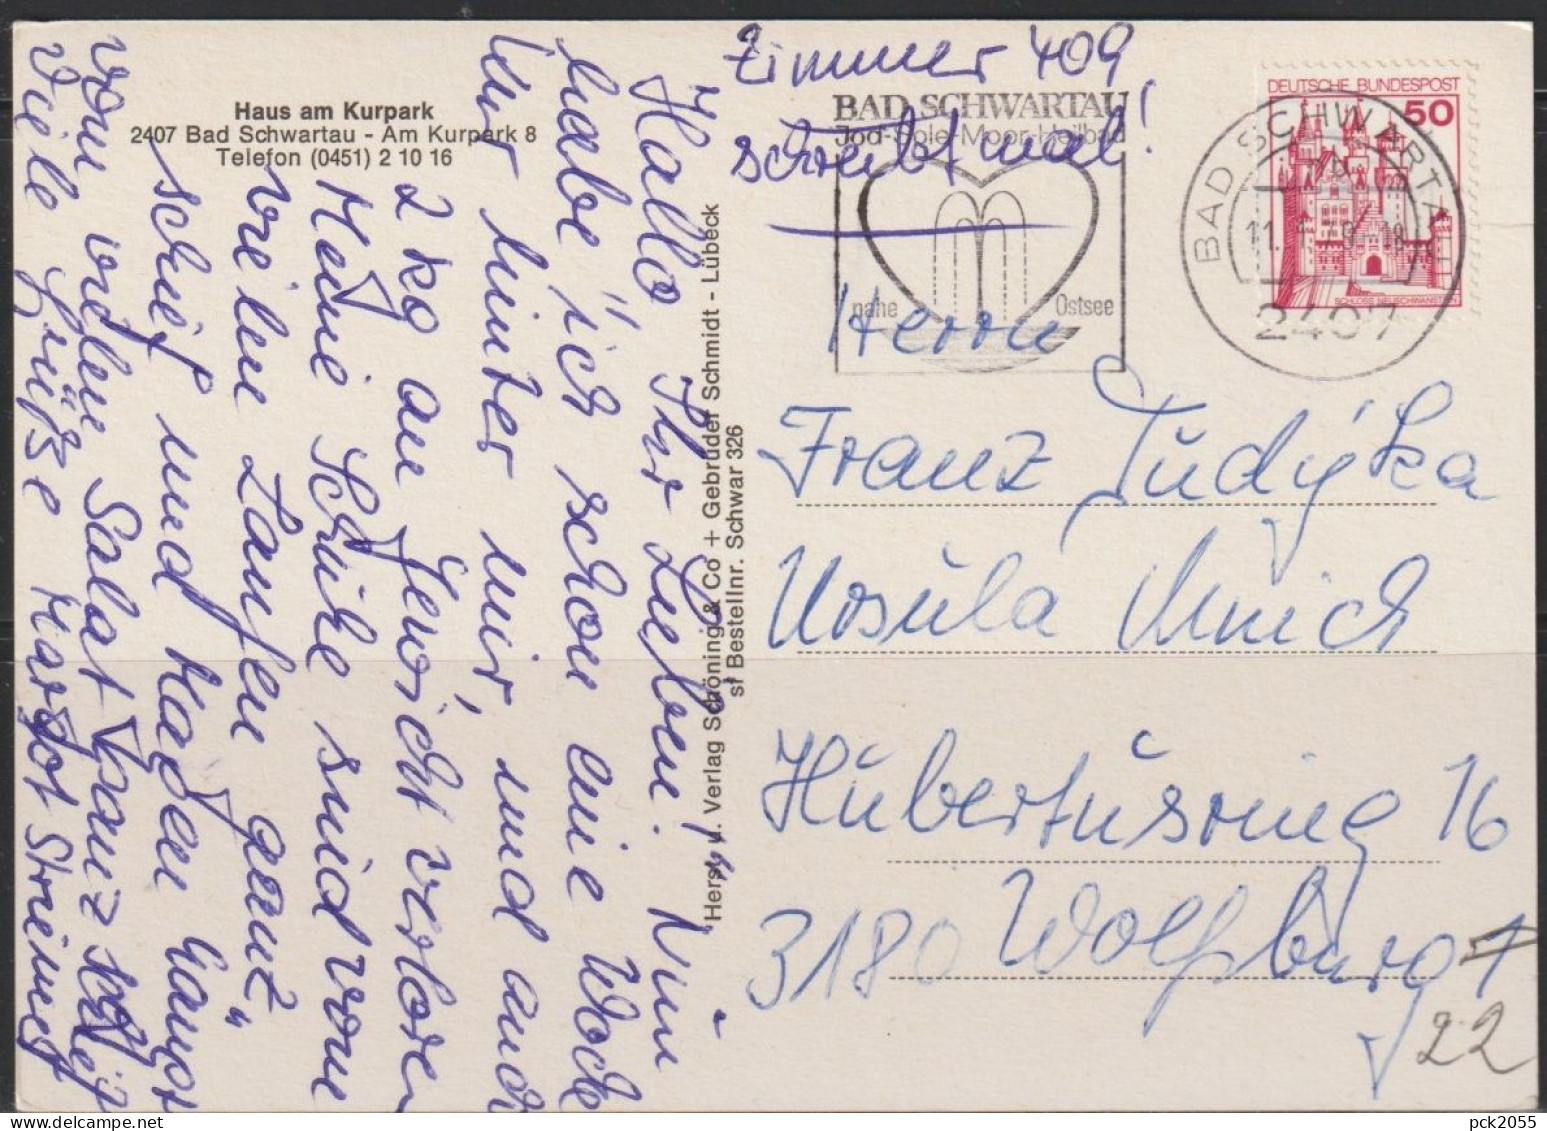 Haus am Kurpark
2407 Bad Schwartau - Am Kurpark 8
Telefon (0451) 2 10 16
Zimmer 409
schreibt mal!
BAD SCHWARTAU
Jod-Sole-Moor-Heilbad
nahe Ostsee
DEUTSCHE BUNDESPOST
50
SCHLOSS NEUSCHWANST
BAD SCHWARTAU
2407
Hallo Ihr Lieben! Nun
habe ich schon eine Woche
Kur hinter mir, und auch
2 kg an Gewicht verloren
Meine Schuhe sind vorne
vielen Laufen ganz
schief und Magen
vom vielen Salat ganz steif
Viele Grüße Margot
Herst. u. Verlag Schöning & Co + Gebrüder Schmidt - Lübeck
sf Bestellnr. Schwar 326
Herrn
Franz Tudyka
Ursula Mnich
Hubertusring 16
3180 Wolfsburg 1
22
pck2055